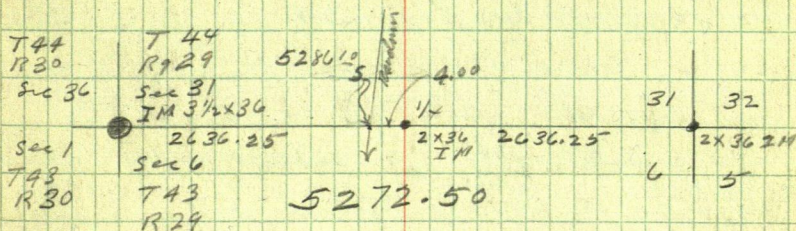 T44
R30
Sec 36
T 44
Rg 29
Sec 31
IM 3 1/2 x 36
5286 10
S
Random
4.00
1/4
31
32
2636.25
2 x 36
IM
2636.25
2 x 36 IM
Sec 1
T43
R30
Sec 6
T43
R29
5272.50
6
5